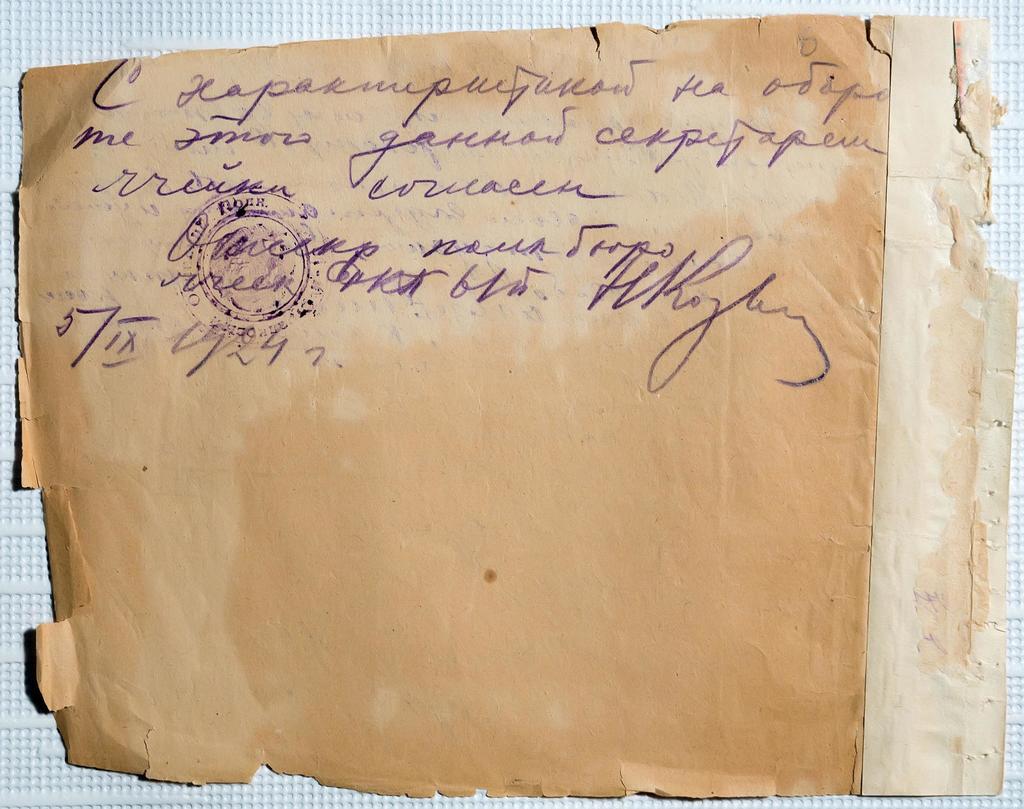 С характеристикой на оборо
те этого данной секретарем
ячейки согласен
Отсекр полит бюро
ячеек ВКП
5/IX 1924 г.